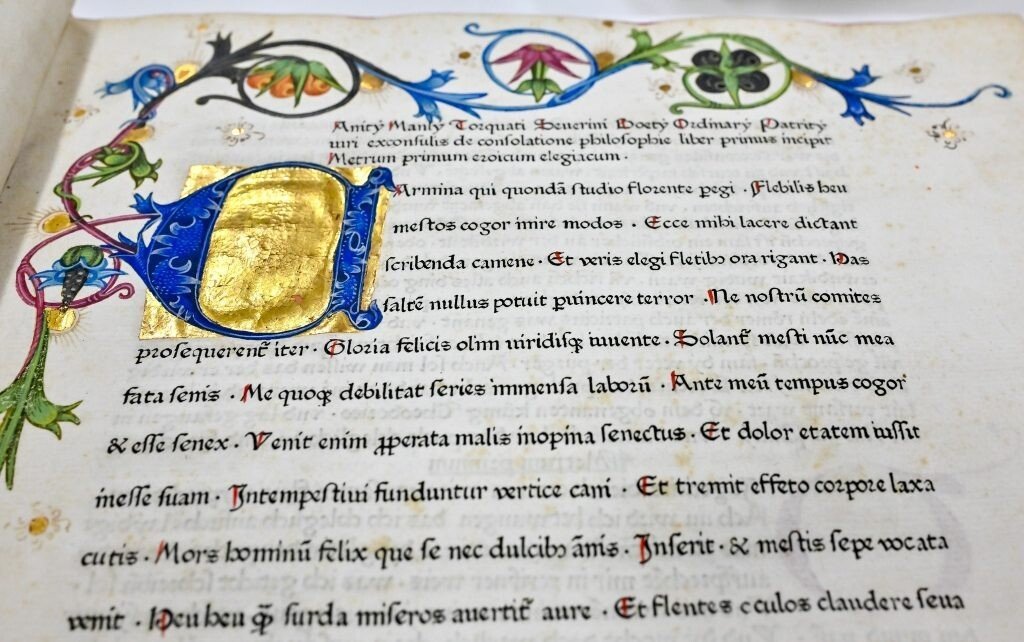 Anitÿ Manlÿ Torquati Seuerini Boetÿ Ordinarÿ Patritÿ
uiri exconsulis de consolatione philosophie liber primus incipit
Metrum primum eroicum elegiacum .
CArmina qui quondã studio florente pegi . Flebilis heu
mestos cogor inire modos . Ecce mihi lacere dictant
scribenda camene . Et veris elegi fletibꝫ ora rigant . Has
saltẽ nullus potuit puincere terror . Ne nostrũ comites
prosequerent̃ iter . Gloria felicis olim uiridisqꝫ iuuente . Solant̃ mesti nũc mea
fata senis . Me quoqꝫ debilitat series immensa laborũ . Ante meũ tempus cogor
& esse senex . Venit enim ꝓperata malis inopina senectus . Et dolor etatem iussit
inesse suam . Intempestiui funduntur vertice cani . Et tremit effeto corpore laxa
cutis . Mors hominũ felix que se nec dulcibꝫ ãnis . Inserit . & mestis sepe vocata
venit . Heu heu q̃ȝ surda miseros auertit̃ aure . Et flentes occulos claudere seua